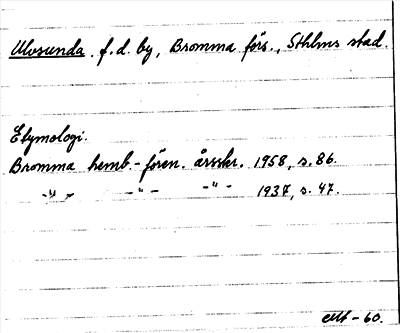 Ulvsunda. f.d. by, Bromma förs., Sthlms stad.
Etymologi.
Bromma hemb.-fören. årsskr. 1958, s. 86.
-"- -"- -"- 1937, s. 47.
-60.